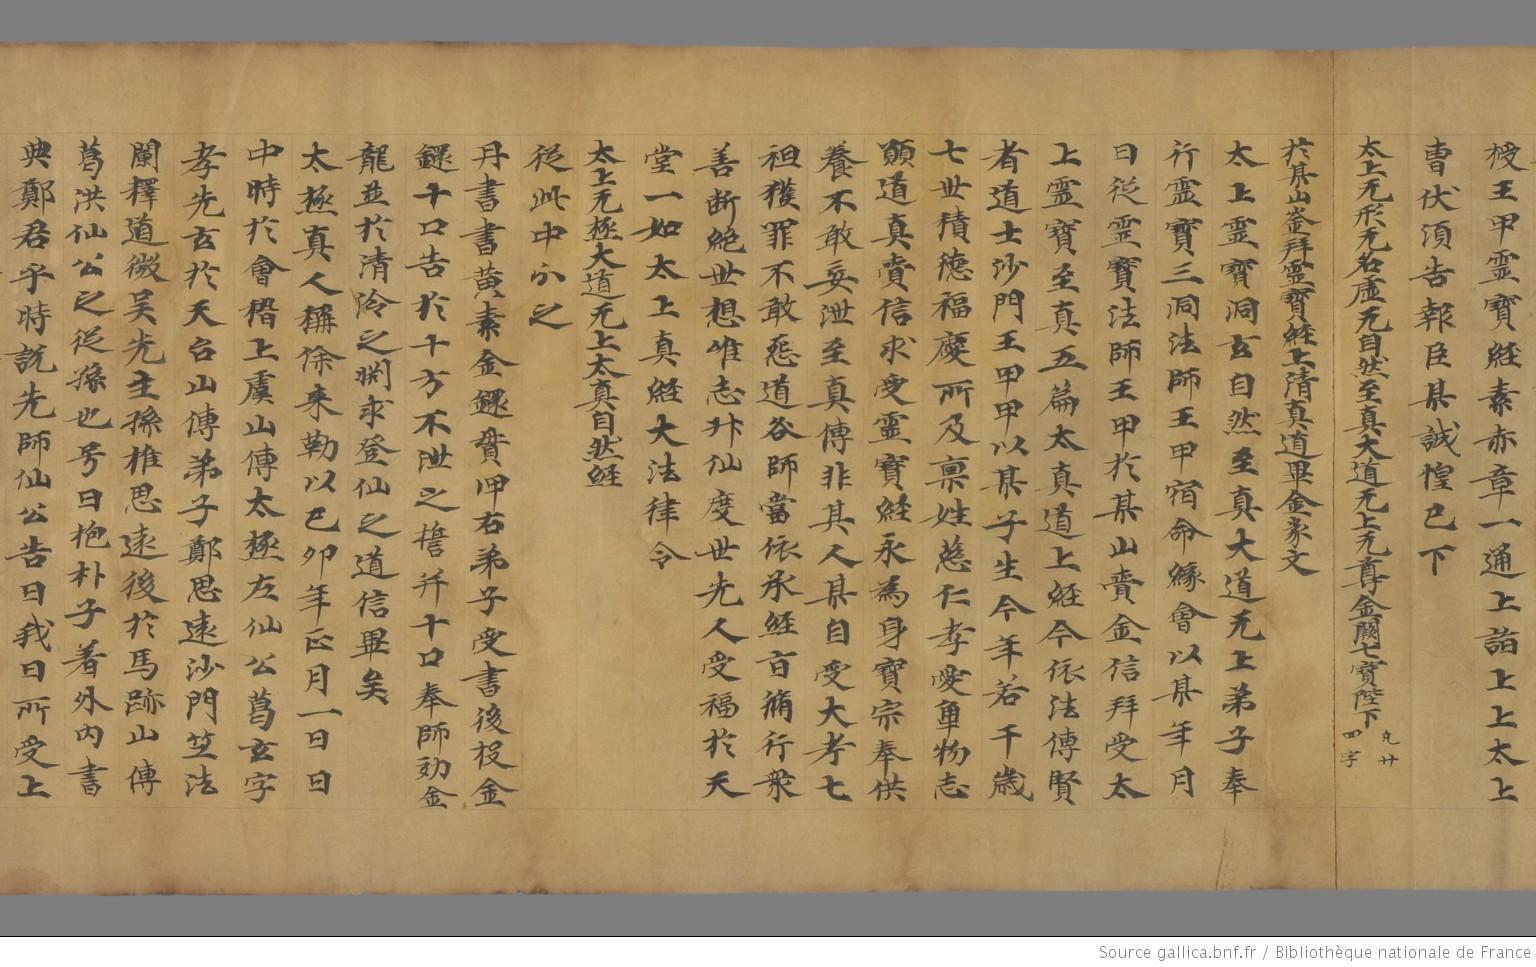 授王甲靈寶經素赤章一通上詣上上太上
曹伏須告報臣某誠惶已下
太上无形无名虛无自然至真大道无上元尊金闕七寶陛下凡廿四字
於某山岳拜靈寶經上清真道畢金篆文
太上靈寶洞玄自然至真大道无上弟子奉
行靈寶三洞法師王甲宿命緣會以某年月
日從靈寶法師王甲於某山賫金信拜受太
上靈寶至真五篇太真道上經今依法傳賢
者道士沙門王甲甲以某子生今年若干歲
七世積德福慶所及稟姓慈仁孝愛重物志
願道真賫信求受靈寶經永為身寶宗奉供
養不敢妄泄至真傳非其人某自受大考七
祖獲罪不敢惡道咎師當依承經旨脩行衆
善斷絕世想唯志升仙度世先人受福於天
堂一如太上真經大法律令
太上无極大道无上太真自然經
從此中分之
丹書書黃素金鐶賫呷右弟子受書後投金
鐶十口告於十方不泄之擔并十口奉師効金
龍並於清冷之渕求登仙之道信畢矣
太極真人稱徐來勒以己卯年正月一日日
中時於會稽上虞山傳太極左仙公葛玄字
孝先玄於天台山傳弟子鄭思遠沙門竺法
蘭釋道微吳先主孫權思遠後於馬跡山傳
葛洪仙公之從孫也号曰抱朴子著外內書
典鄭君于時說先師仙公告曰我日所受上
Source gallica.bnf.fr / Bibliothèque nationale de France